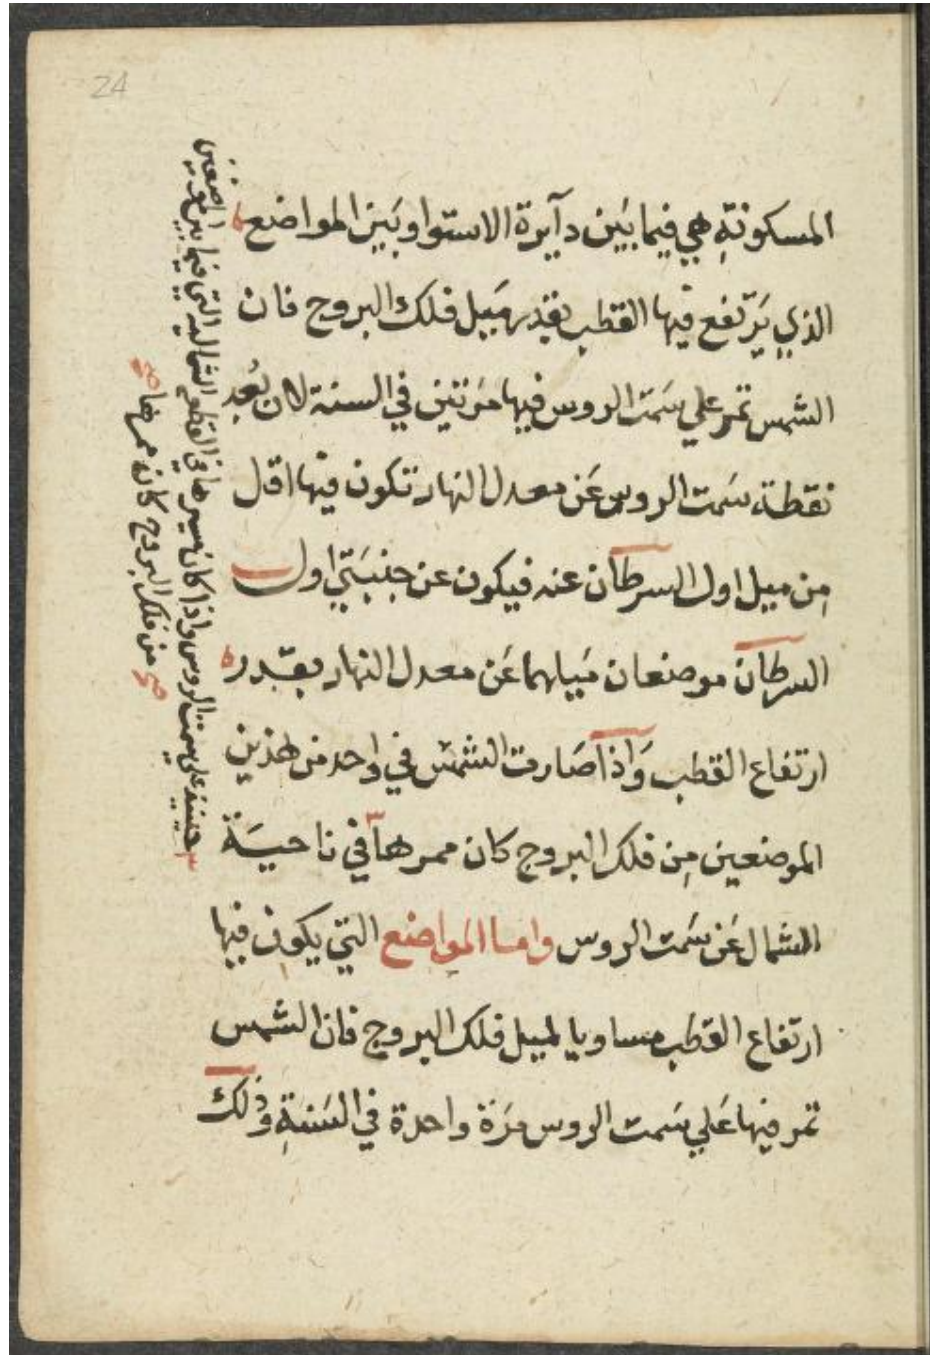 24
المسكونة هي فيما بين دآيرة الاستوا وبين المواضع
الذي يرتفع فيها القطب بقدر ميل فلك البروج فان
الشمس تمر علي سمت الروس فيها مرتين في السنة لان بعد
نقطة سمت الروس عن معدل النهار تكون فيها اقل
من ميل اول السرطان عنه فيكون عن جنبتي اول
السرطان موضعان ميلهما عن معدل النهار بقدر
ارتفاع القطب واذا صارت الشمس في واحد من هذين
الموضعين من فلك البروج كان ممرها في ناحية
الشمال عن سمت الروس واما المواضع التي يكون فيها
ارتفاع القطب مساويا لميل فلك البروج فان الشمس
تمر فيها علي سمت الروس مرة واحدة في السنة وذلك
حينيذ علي سمت الروس واذا كان مسيرها في القطع الشمالية التي فيما بين
من فلك البروج كان ممرها